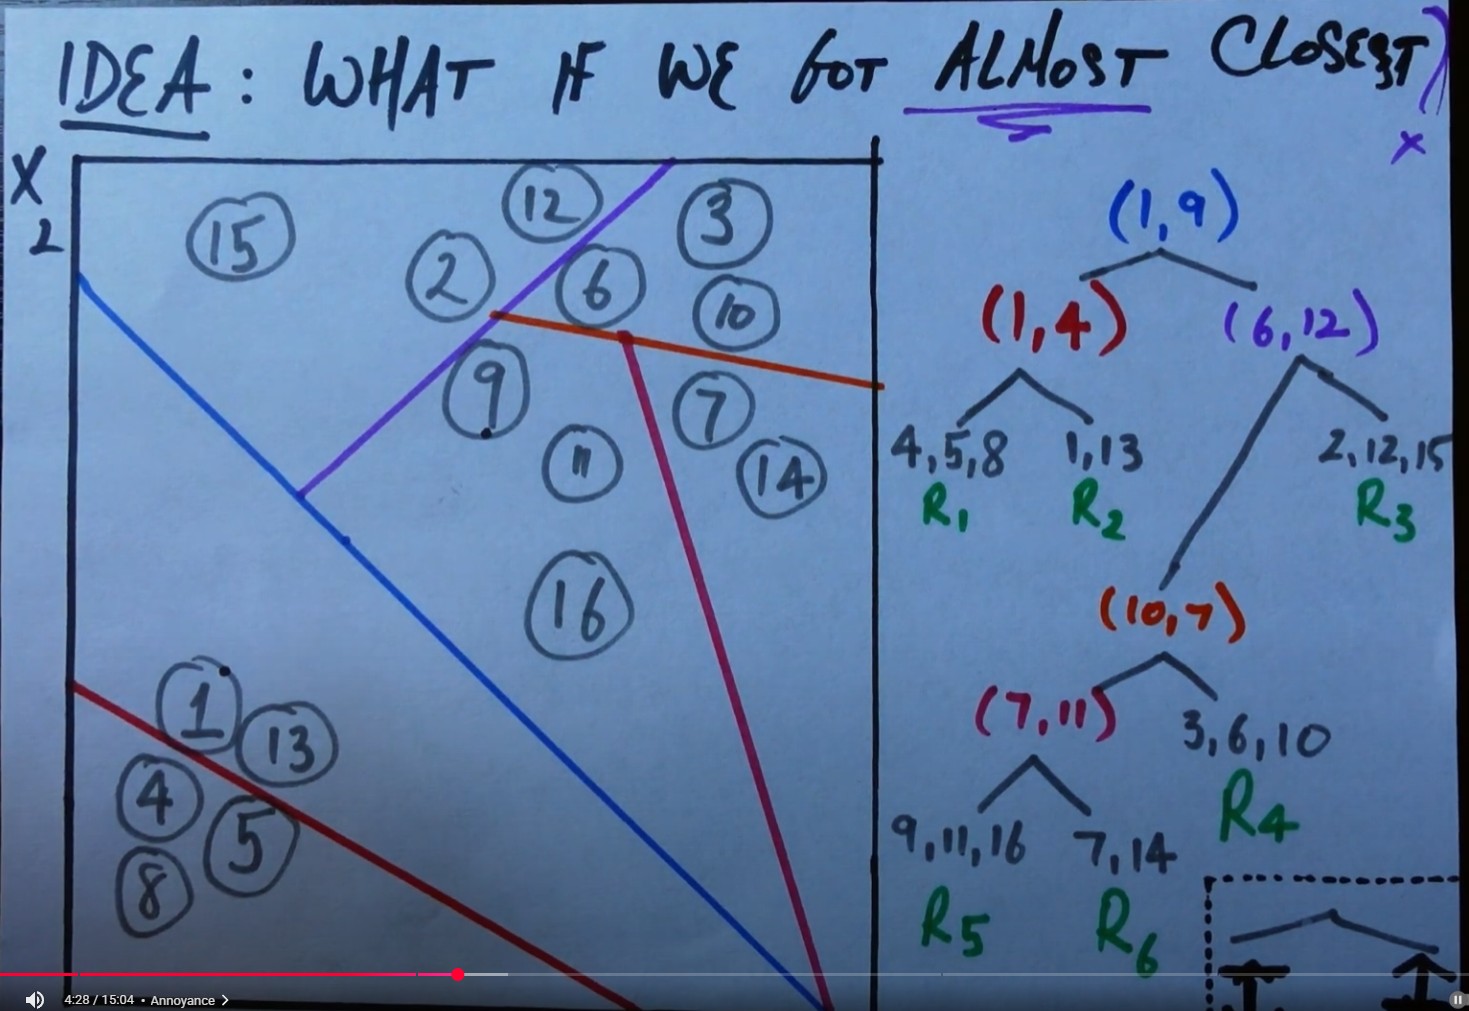 IDEA: WHAT IF WE GOT ALMOST CLOSEST)
x
X
2
15
12
3
2
6
10
9
7
11
14
16
1
13
4
5
8
(1,9)
(1,4)
(6,12)
4,5,8
1,13
2,12,15
R1
R2
R3
(10,7)
(7,11)
3,6,10
R4
9,11,16
7,14
R5
R6
4:28 / 15:04 • Annoyance >